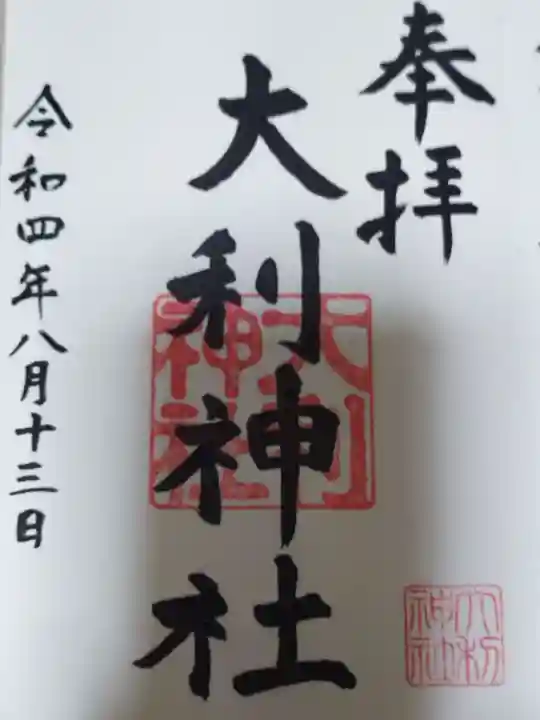 奉拝
大利神社
大利神社
大利神社
令和四年八月十三日